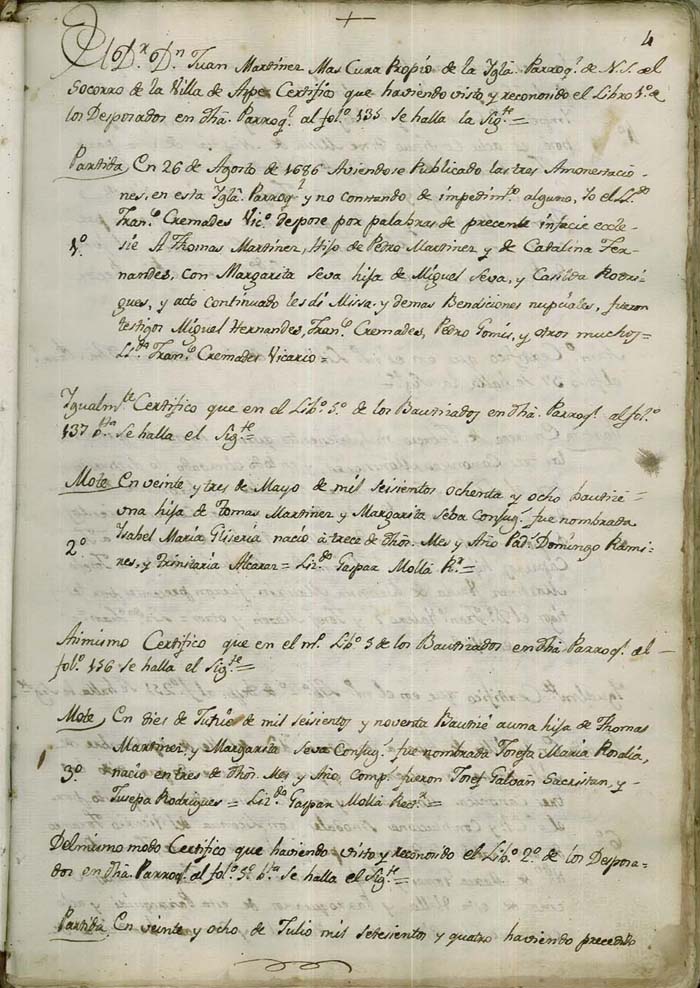 4
El D.r D.n Juan Martinez Mas Cura Propio de la Iglã. Parroq.l de N. S. del
Socorro de la Villa de Aspe Certifico que haviendo visto y reconosido el Libro 1.º de
los Desposados en dhã. Parroq.l al fol.º 135 se halla la sig.te =
Partida En 26 de Agosto de 1686 Aviendose Publicado las tres Amonestacio-
nes, en esta Iglã. Parroq.l y no constando de impedim.to alguno, Yo el L.do
Fran.co Cremades Vic.º despose por palabras de precente infacie eccle-
1.º sie A Thomas Martinez, Hijo de Pedro Martinez y de Catalina Fer-
nandes, con Margarita Seva hija de Miguel Seva, y Casilda Rodri-
gues, y acto continuado les di Missa. y demas Bendiciones nupciales, fueron
testigos Miguel Hernandes, Fran.co Cremades, Pedro Gomis, y otros muchos =
Li.do Fran.co Cremades Vicario =
Igualm.te Certifico que en el Lib.º 5.º de los Bautizados en dhã. Parroq.l al fol.º
137 b.ta se halla el Sig.te =
Mote En veinte y tres de Mayo de mil seisientos ochenta y ocho bautizé
una hija de Tomas Martinez y Margarita Seba Consug.s fue nombrada
Isabel Maria Gliseria nacio à trece de dhõs. Mes y Año Pad.s Domingo Rami-
2.º res, y Trinitaria Alcaraz = Liz.do Gaspar Molla R.r =
Asimismo Certifico que en el m.º Lib.º 5 de los Bautizados en dhã Parroq.l al
fol.º 156 se halla el Sig.te =
Mote En dies de Junio de mil seisientos y noventa Bautizé a una hija de Thomas
Martinez y Margarita Seva Consug.s fue nombrada Josefa Maria Rosalia,
3.º nacio en tres de dhõs. Mes y Año Comp.s fueron Josef Galvan Sacristan, y
Jusepa Rodrigues = Liz.do Gaspar Molla Rect.r =
Del mismo modo Certifico que haviendo visto y reconosido el Lib.º 2.º de los Desposa-
dos en dhã. Parroq.l al fol.º 5.º b.ta se halla el sig.te =
Partida En veinte y ocho de Julio mil setesientos y quatro haviendo precedido